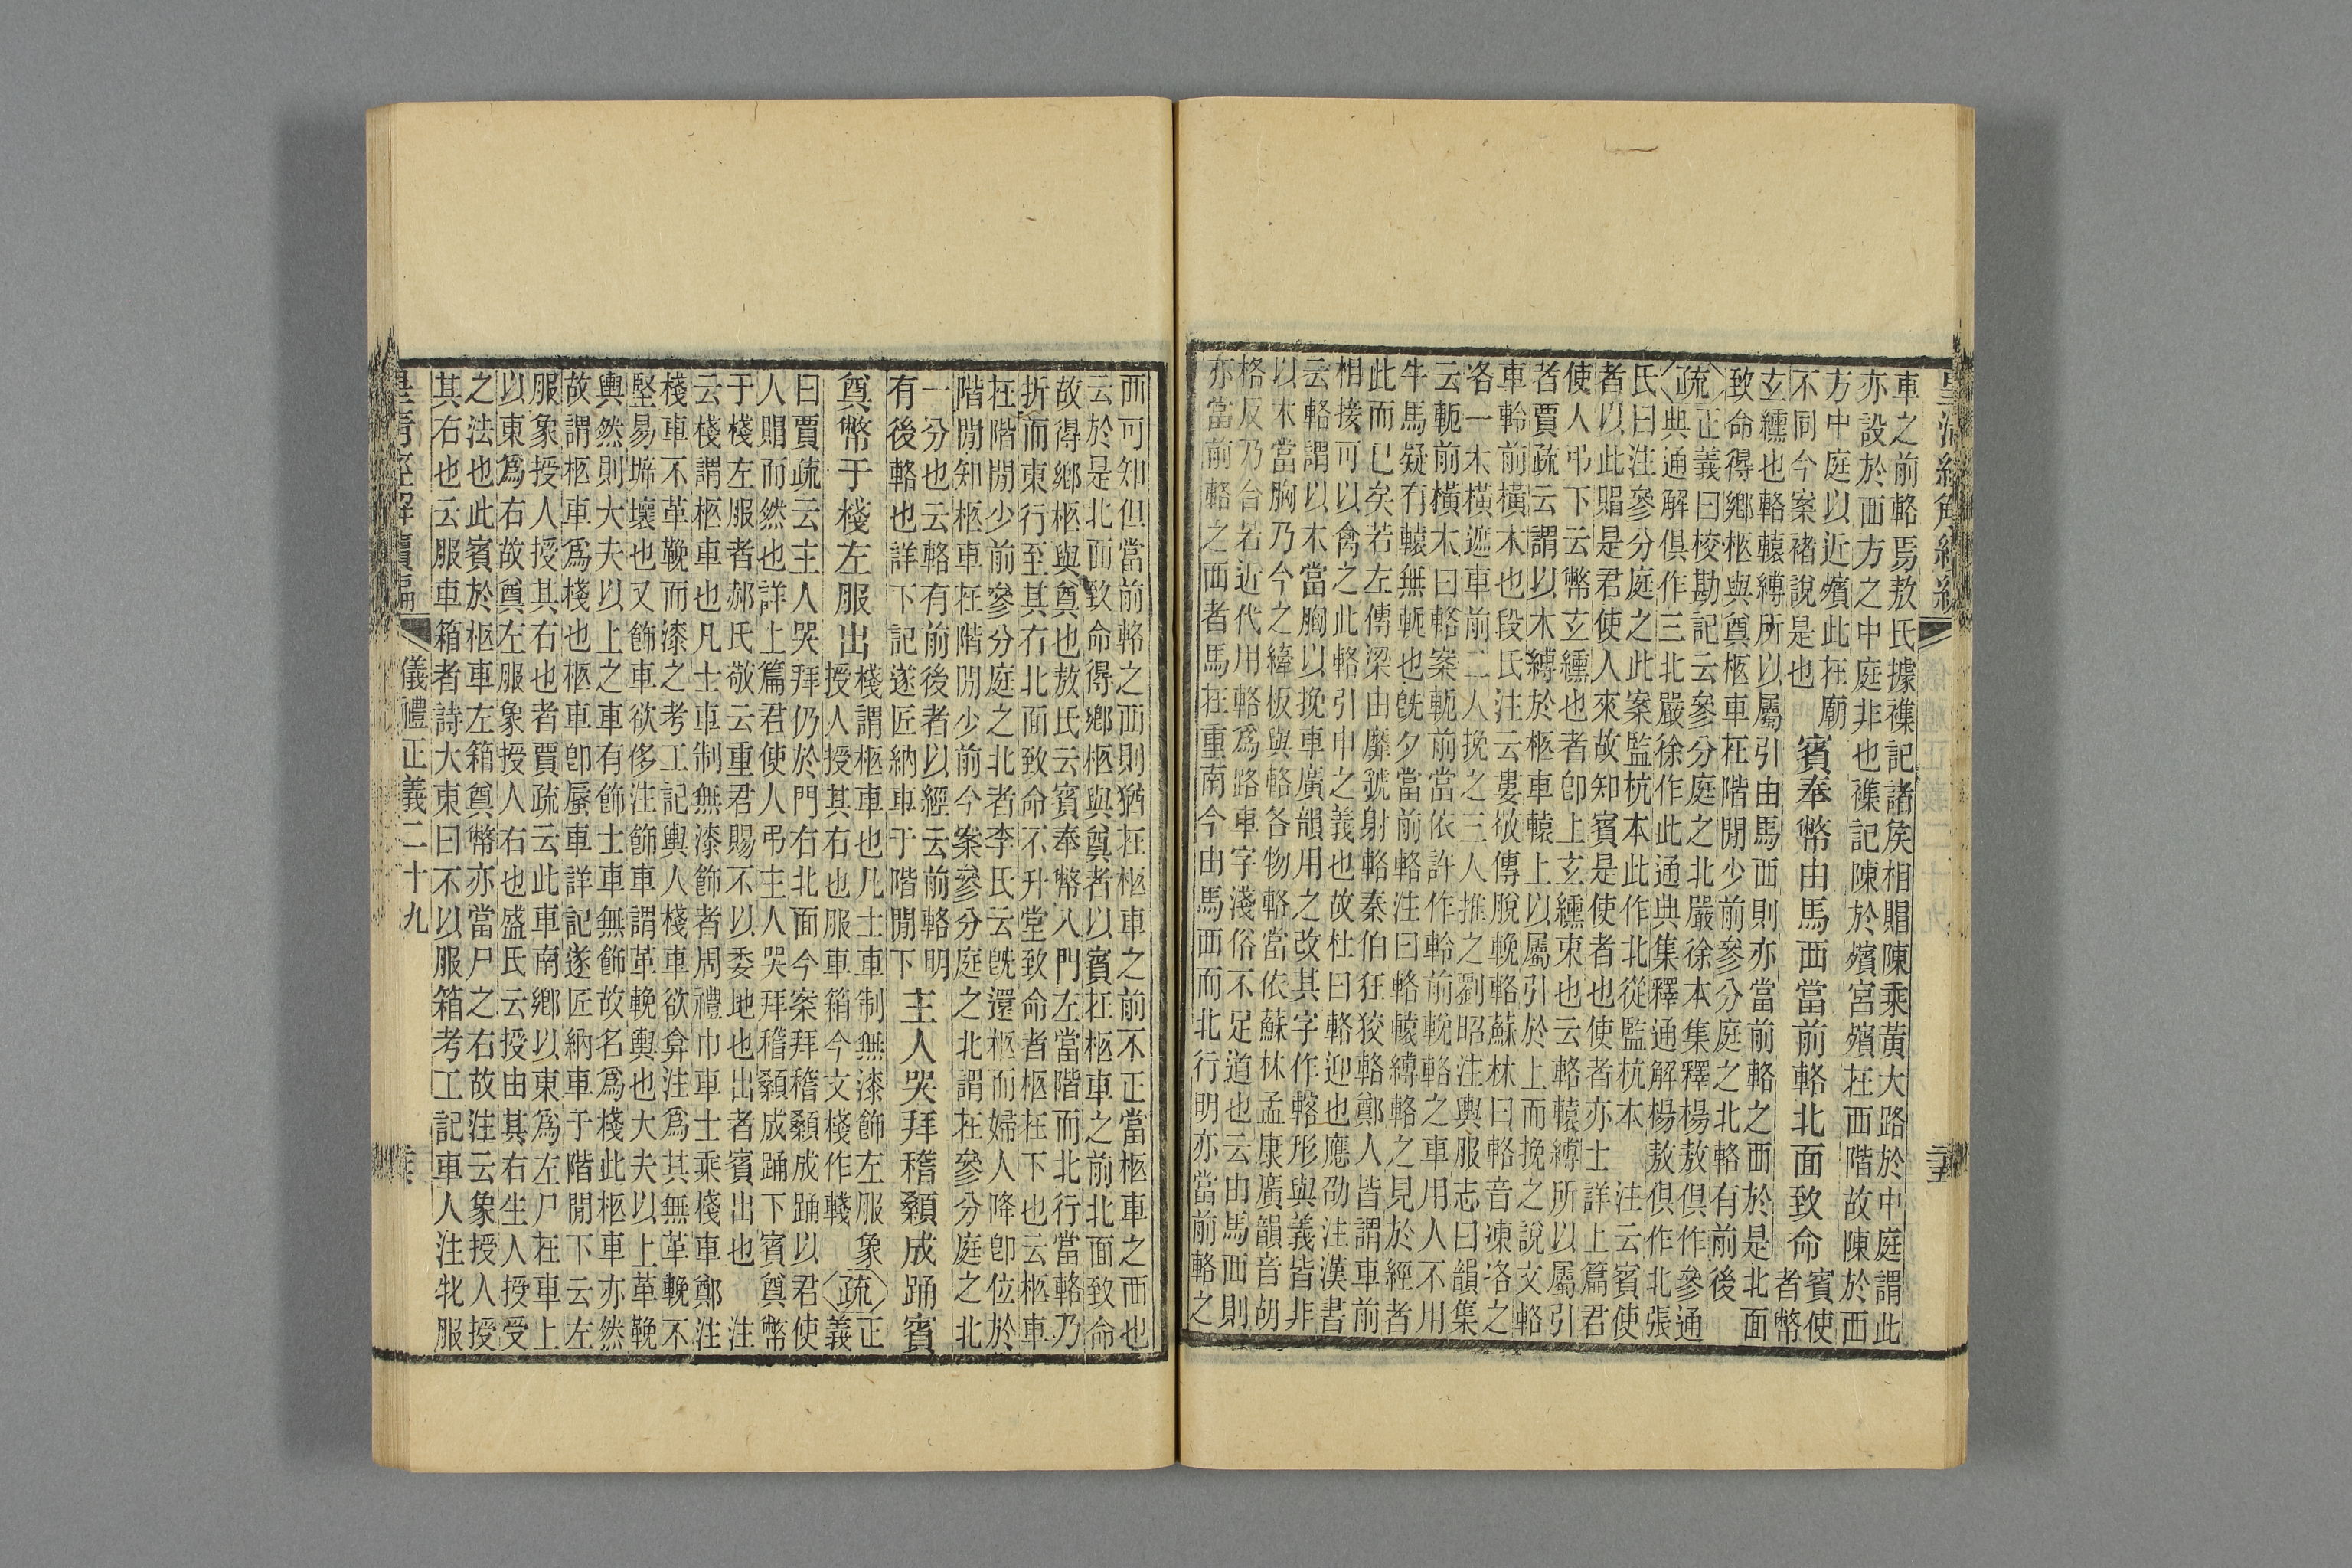 車之前輅焉敖氏據襍記諸侯相賵陳乘黃大路於中庭謂此
亦設於西方之中庭非也襍記陳於殯宮殯在西階故陳於西
方中庭以近殯此在廟
不同今案褚說是也
賓奉幣由馬西當前輅北面致命
賓使者幣
玄纁也輅轅縛所以屬引由馬西則亦當前輅之西於是北面
致命得鄉柩與奠柩車在階閒少前參分庭之北輅有前後
〈疏〉正義曰校勘記云參分庭之北嚴徐本集釋楊敖俱作參通
典通解俱作三北嚴徐作此通典集釋通解楊敖俱作北張
氏曰注參分庭之此案監杭本此作北從監杭本　注云賓使
者以此賵是君使人來故知賓是使者也使者亦士詳上篇君
使人弔下云幣玄纁也者卽上玄纁束也云輅轅縛所以屬引
者賈疏云謂以木縛於柩車轅上以屬引於上而挽之說文輅
車軨前橫木也段氏注云婁敬傳脫輓輅蘇林曰輅音凍洛之
洛一木橫遮車前二人挽之三人推之劉昭注輿服志曰韻集
云軛前橫木曰輅案軛前當依許作軨前輓輅之車用人不用
牛馬疑有轅無軛也旣夕當前輅注曰輅轅縛輅之見於經者
此而已矣若左傳梁由靡虢射輅秦伯狂狡輅鄭人皆謂車前
相接可以禽之此輅引申之義也故杜曰輅迎也應劭注漢書
云輅謂以木當胸以挽車廣韻用之改其字作輅形與義皆非
以木當胸乃今之縴板與輅各物輅當依蘇林孟康廣韻音胡
格反乃合若近代用輅爲路車字淺俗不足道也云由馬西則
亦當前輅之西者馬在重南今由馬西而北行明亦當前輅之
西可知但當前輅之西則猶在柩車之前不正當柩車之西也
云於是北面致命得鄉柩與奠者以賓在柩車之前北面致命
故得鄉柩與奠也敖氏云賓奉幣入門左當階而北行當輅乃
折而東行至其右北面致命不升堂致命者柩在下也云柩車
在階閒少前參分庭之北者李氏云旣還柩而婦人降卽位於
階閒知柩車在階閒少前今案參分庭之北謂在參分庭之北
一分也云輅有前後者以經云前輅明
有後輅也詳下記遂匠納車于階閒下
主人哭拜稽顙成踊賓
奠幣于棧左服出
棧謂柩車也凡士車制無漆飾左服象
授人授其右也服車箱今文棧作輚
〈疏〉正義
曰賈疏云主人哭拜仍於門右北面今案拜稽顙成踊以君使
人賵而然也詳上篇君使人弔主人哭拜稽顙成踊下賓奠幣
于棧左服者郝氏敬云重君賜不以委地也出者賓出也　注
云棧謂柩車也凡士車制無漆飾者周禮巾車士乘棧車鄭注
棧車不革鞔而漆之考工記輿人棧車欲弇注爲其無革鞔不
堅易㙷壞也又飾車欲侈注飾車謂革輓輿也大夫以上革鞔
輿然則大夫以上之車有飾士車無飾故名爲棧此柩車亦然
故謂柩車爲棧也柩車卽蜃車詳記遂匠納車于階閒下云左
服象授人授其右也者賈疏云此車南鄉以東爲左尸在車上
以東爲右故奠左服象授人右也盛氏云授由其右生人授受
之法也此賓於柩車左箱奠幣亦當尸之右故注云象授人授
其右也云服車箱者詩大東曰不以服箱考工記車人注牝服
儀禮正義二十九